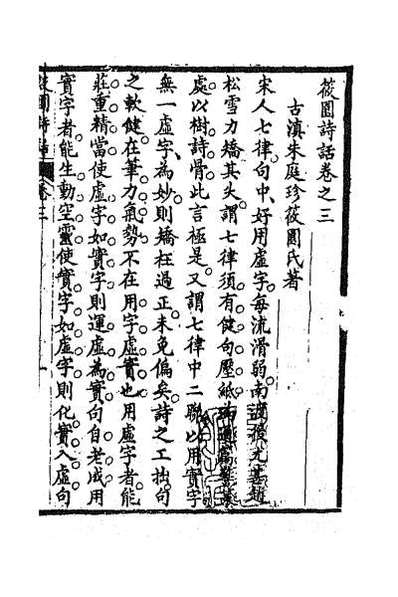 筱園詩話卷之三
古滇朱庭珍筱園氏著
宋人七律句中好用虛字每流滑弱南渡後尤甚趙
松雪力矯其失謂七律須有健句壓紙為通篇警策
處以樹詩骨此言極是又謂七律中二聯以用實字
無一虛字為妙則矯枉過正未免偏矣詩之工拙句
之軟健在筆力氣勢不在用字虛實也用虛字者能
莊重精當使虛字如實字則運虛為實句自老成用
實字者能生動空靈使實字如虛字則化實入虛句
筱園詩話 卷三